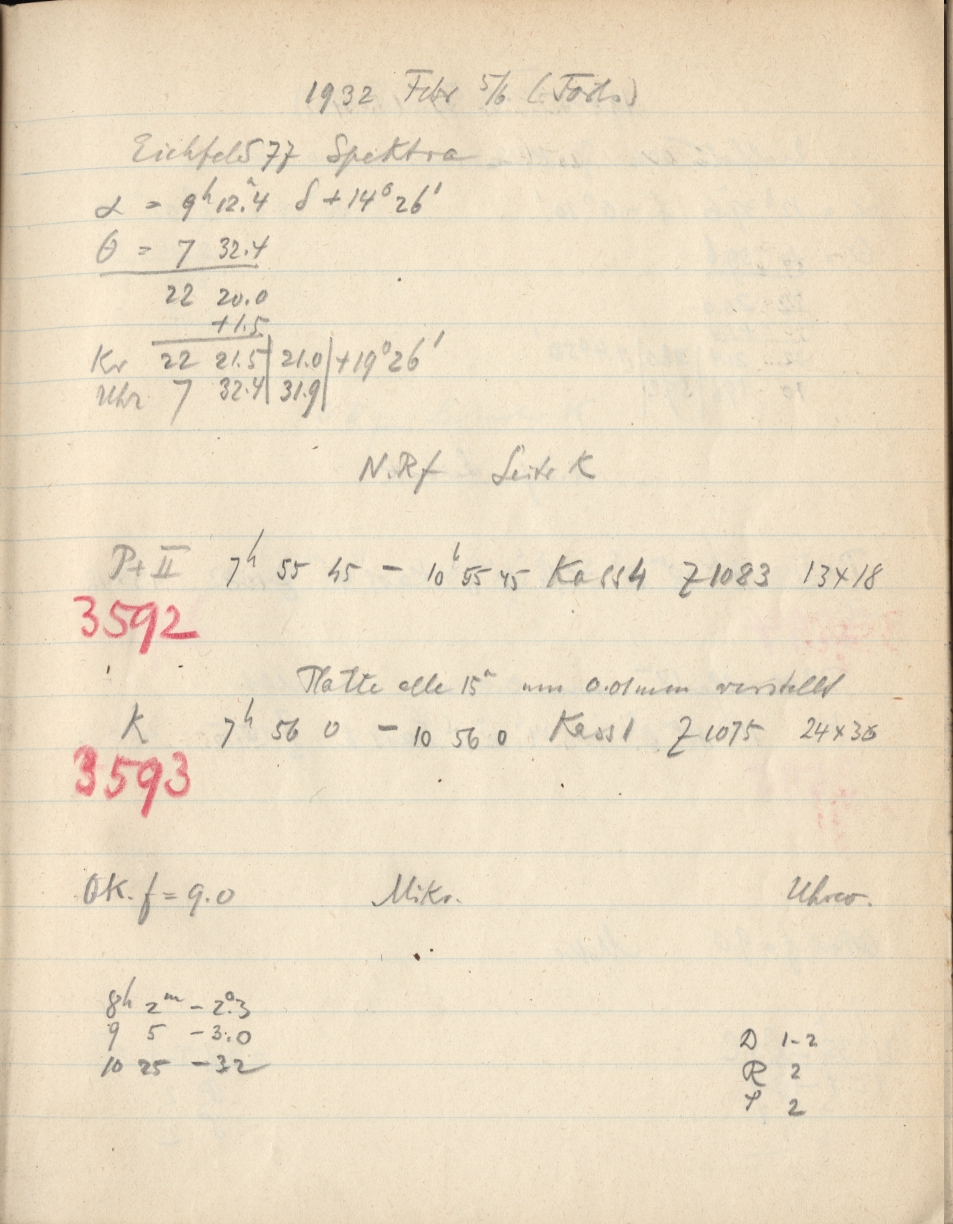 1932 Febr 5/6 (Forts)
Eichfeld 77 Spektra
α = 9ʰ 12.ᵐ4 δ +14° 26'
θ = 7 32.4
22 20.0
+1.5
Kr 22 21.5 | 21.0 | +19° 26'
Uhr 7 32.4 | 31.9 |
N.Rf Seite K
P+II 7ʰ 55 45 – 10ʰ 55 45 Kass 4 Z 1083 13×18
3592
Platte alle 15ᵐ um 0.01mm verstellt
K 7ʰ 56 0 – 10 56 0 Kass 1 Z 1075 24×30
3593
OK. f = 9.0 Mikr. Uhrco.
8h 2ᵐ – 2°.3
9 5 – 3.0
10 25 – 3.2
D 1-2
R 2
2